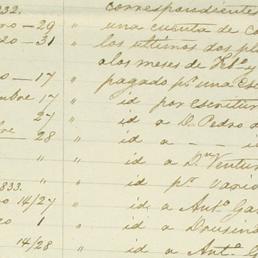 832. correspondientes
ro - 29 una cuenta de c
zo - 31 los ultimos dos pl
a los meses de Feb.o y
o - 17 pagado p.r una es
mbre 17 id por escritur
" 27 id a D. Pedro d
bre - 28 id a - - i
" " id a D.n Ventur
" " id p.r vario
833.
o 14/27 id a Ant.o Ga
o 1 id a Dousin
14/28 id a Ant.o G